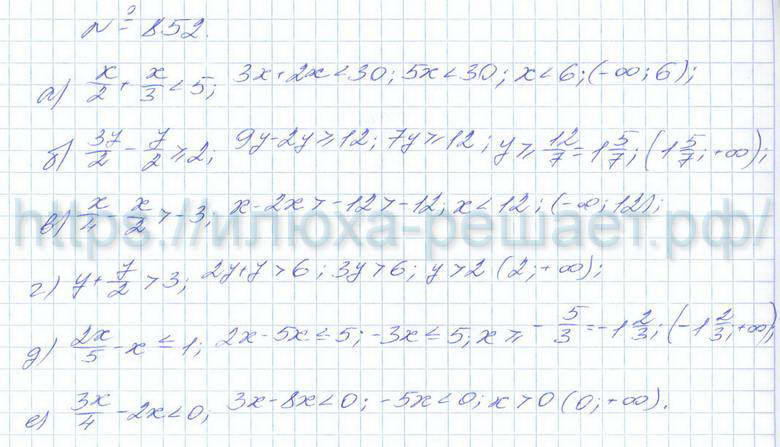 № 852.
а) x/2 + x/3 < 5; 3x+2x<30; 5x<30; x<6; (-∞; 6);
б) 3y/2 - y/2 ≥ 2; 9y-2y≥12; 7y≥12; y≥ 12/7 = 1 5/7; (1 5/7; +∞);
в) x/4 - x/2 > -3; x-2x>-12>-12; x<12; (-∞; 12);
https://илюха-решает.рф/
г) y + y/2 > 3; 2y+y>6; 3y>6; y>2 (2; +∞);
д) 2x/5 - x ≤ 1; 2x-5x≤5; -3x≤5; x≥ - 5/3 = -1 2/3; (-1 2/3; +∞);
е) 3x/4 - 2x<0; 3x-8x<0; -5x<0; x>0 (0; +∞).